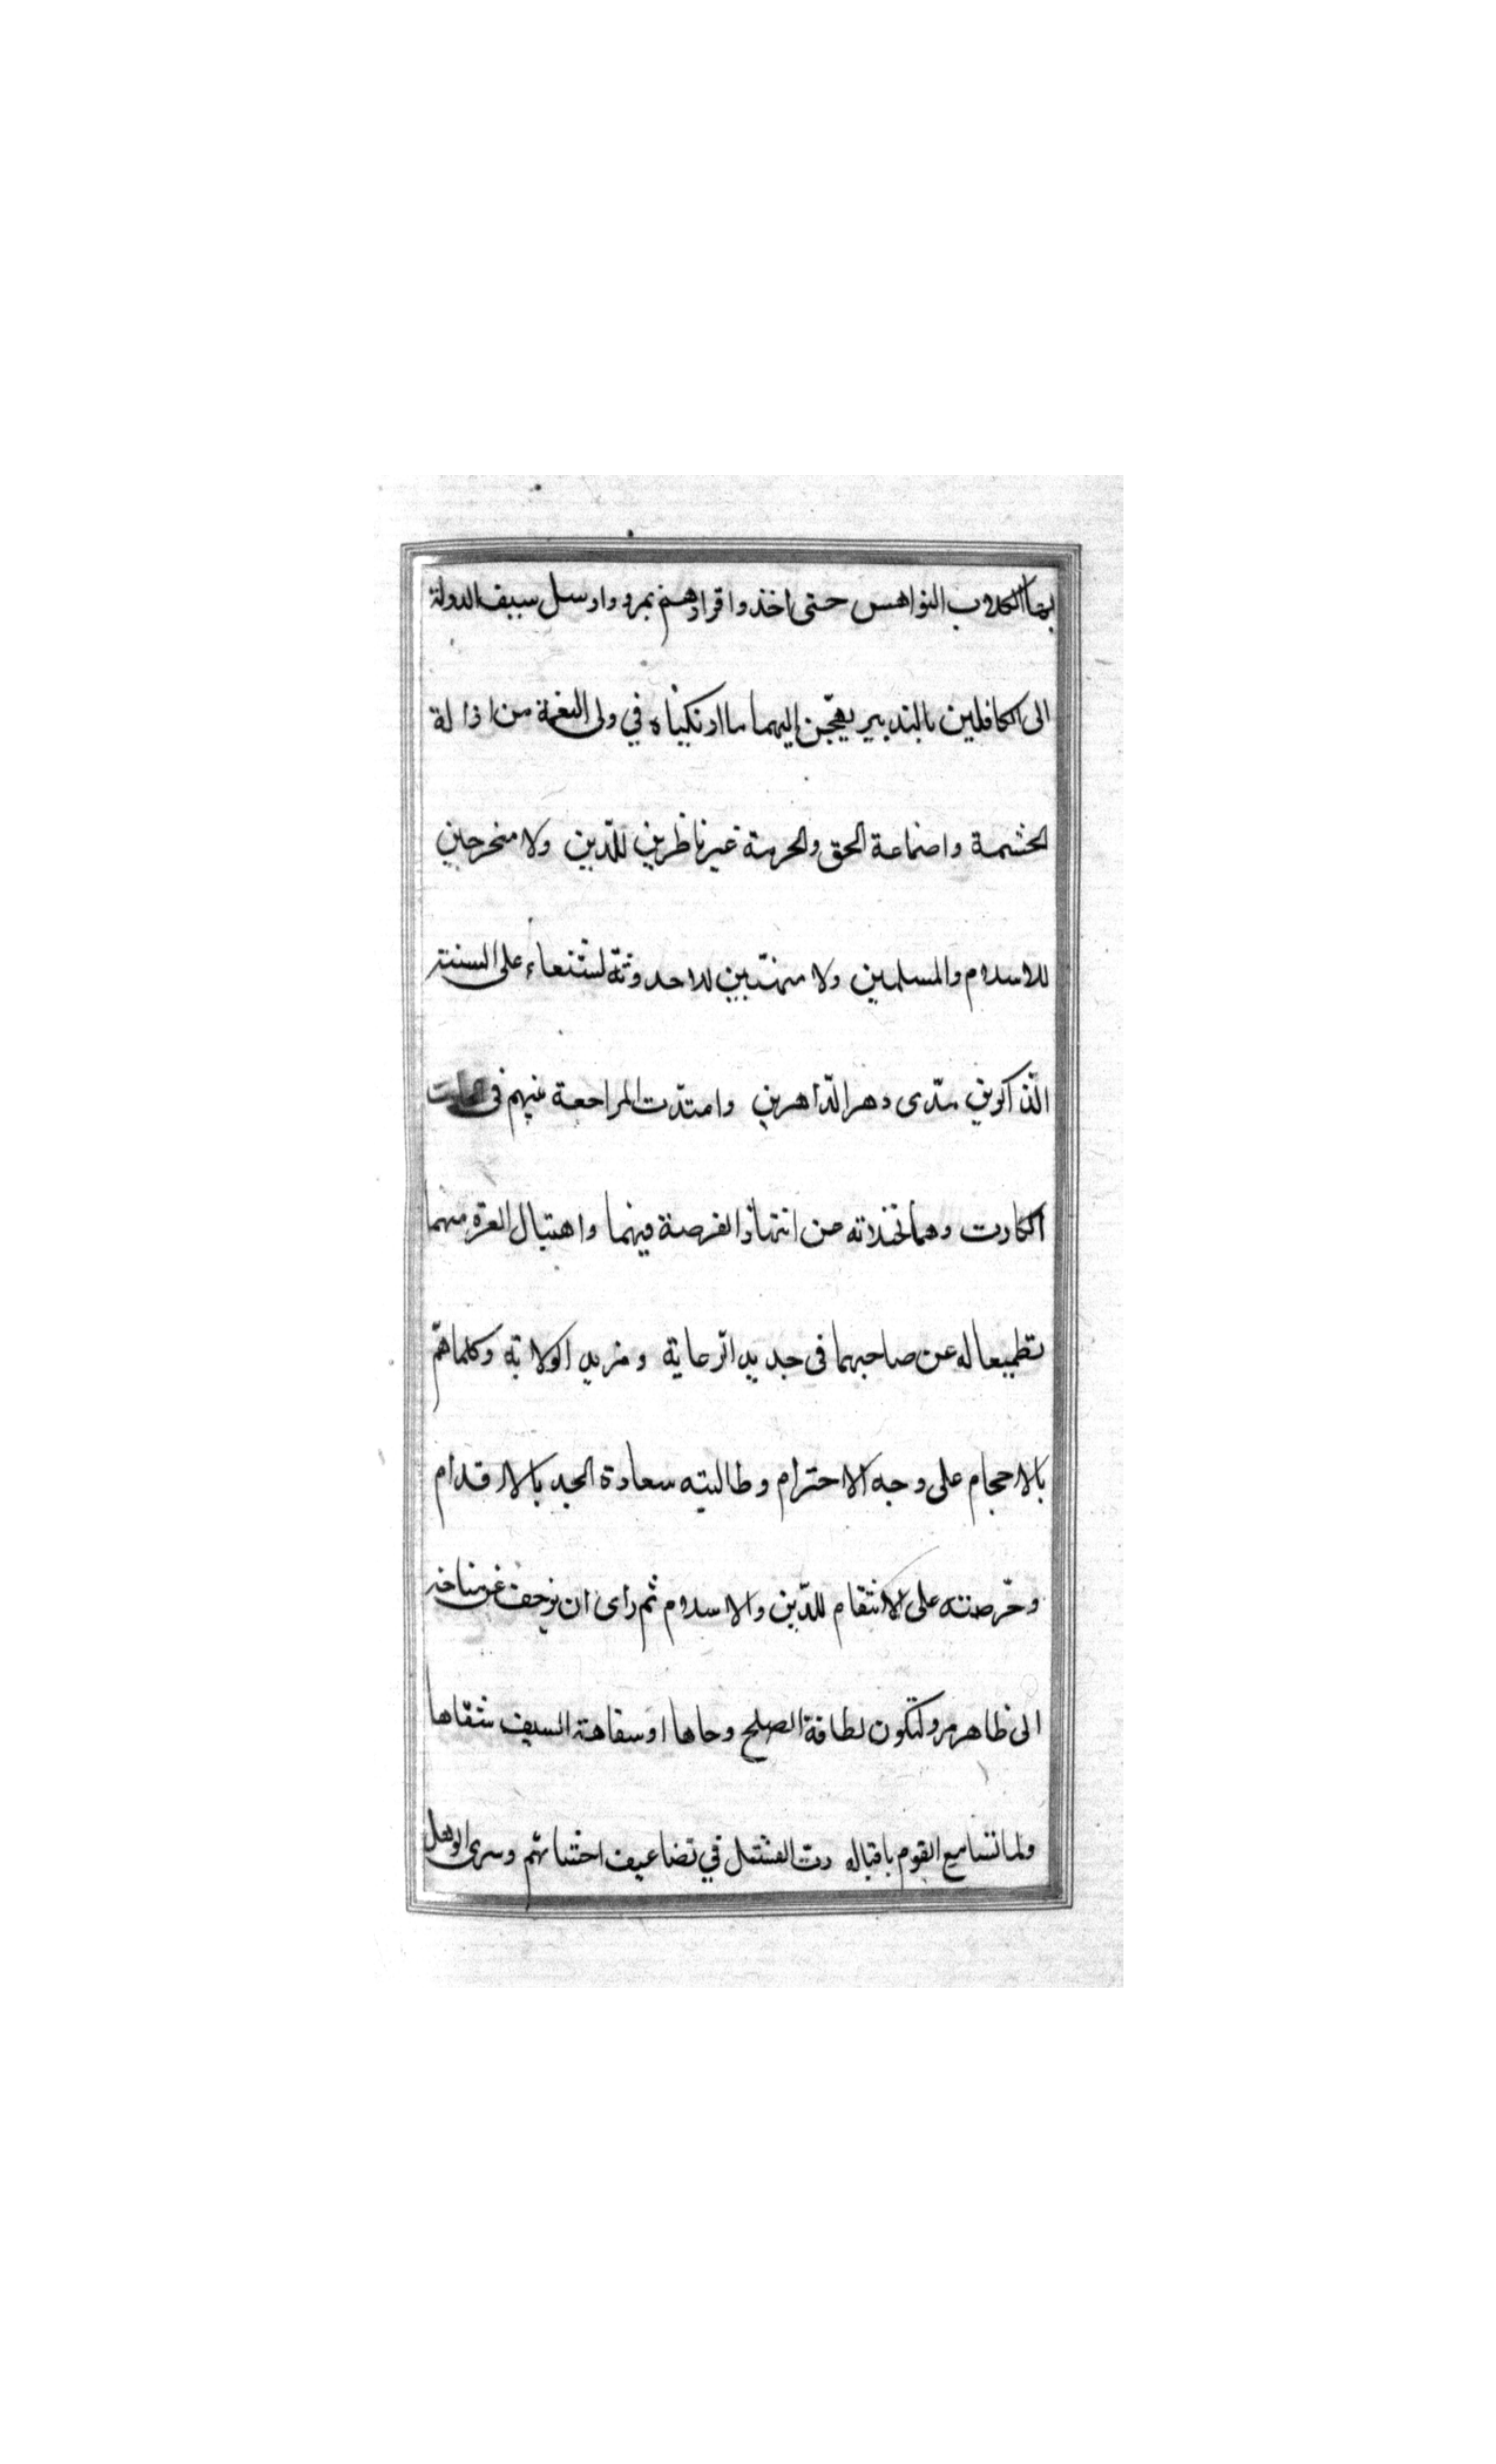 بها الكلاب النواهس حتى اخذوا قرارهم بمرو وارسل سيف الدولة
الى الكافلين بالتدبير يهجّن إليهما ما ارتكباه في ولى النعمة من اذالة
الحشمة واضاعة الحق والحرمة غير ناظرين للدّين ولا متحرجين
للاسلام والمسلمين ولا متهيّبين للاحدوثة لشنعاء على السنة
الذّاكرين سدّى دهر الدّاهرين وامتدّت المراجعة بينهم في
الكارت وهما تخذلانه عن انتهاز الفرصة فيهما واهتبال الغرة منهما
تطميعا له عن صاحبهما في جديد الرّعاية ومزيد الولاية وكلما همّ
بالاحجام على وجه الاحترام وطالبته سعادة الجد بالاقدام
وحّرضته على الانتقام للدّين والاسلام ثم راى ان يزحف عن مناخه
الى ظاهر مرو لتكون لطافة الصلح وحاها او سفاهة السيف شفاها
ولما تسامع القوم باقباله دبّ الفشل في تضاعيف احشائهم وسرى الوهل